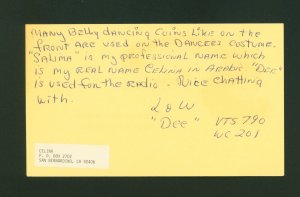 Many Belly dancing Coins Like on the
front are used on the Dancers costume.
"Salima" is my professional name which
is my real name Celina in Arabic "Dee"
is used for the radio. Nice chatting
with.
L & W
"Dee" VTS 790
WC 201
CELINA
P. O. BOX 2702
SAN BERNARDINO, CA 92406